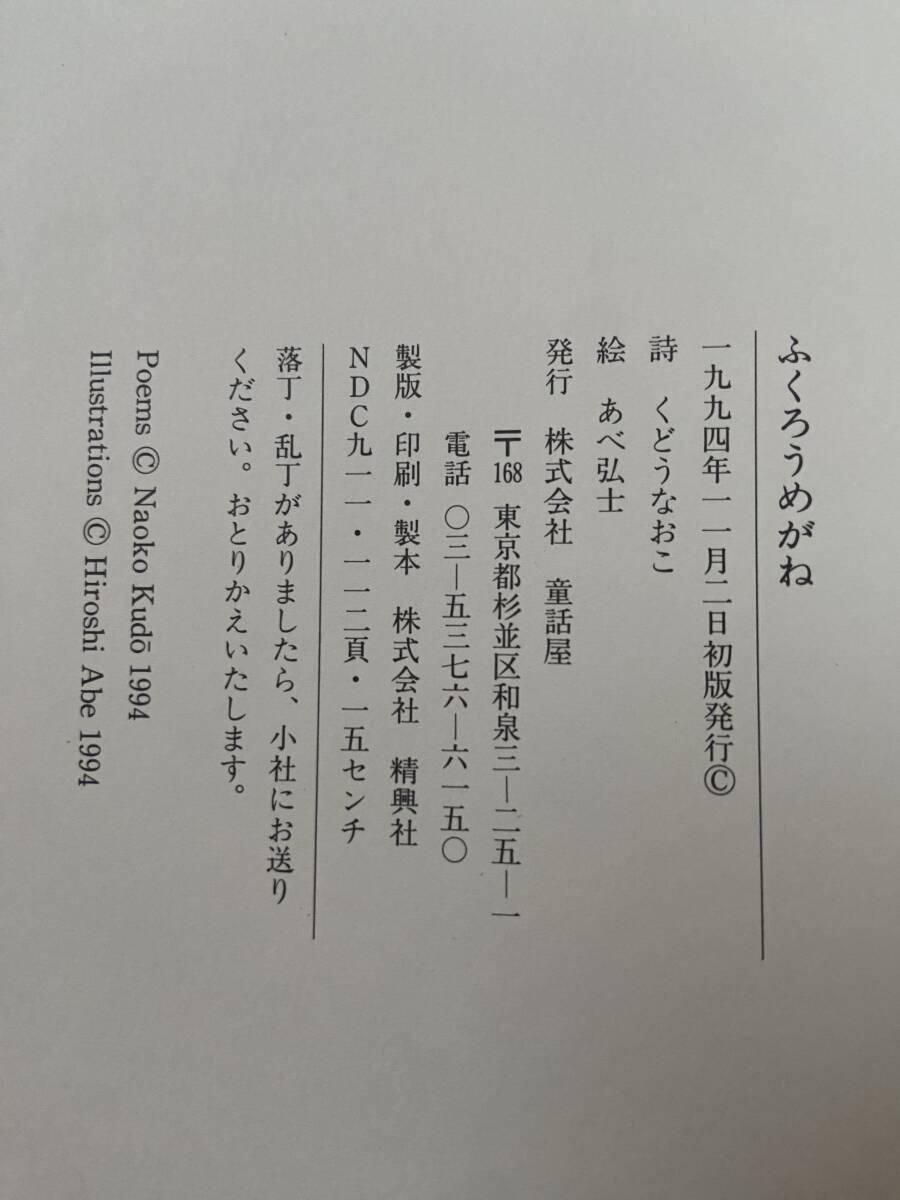 ふくろうめがね
一九九四年一一月二日初版発行©
詩　くどうなおこ
絵　あべ弘士
発行　株式会社　童話屋
〒168　東京都杉並区和泉三―二五―一
電話　〇三―五三七六―六一五〇
製版・印刷・製本　株式会社　精興社
NDC九一一・一一二頁・一五センチ
落丁・乱丁がありましたら、小社にお送り
ください。おとりかえいたします。
Poems © Naoko Kudō 1994
Illustrations © Hiroshi Abe 1994